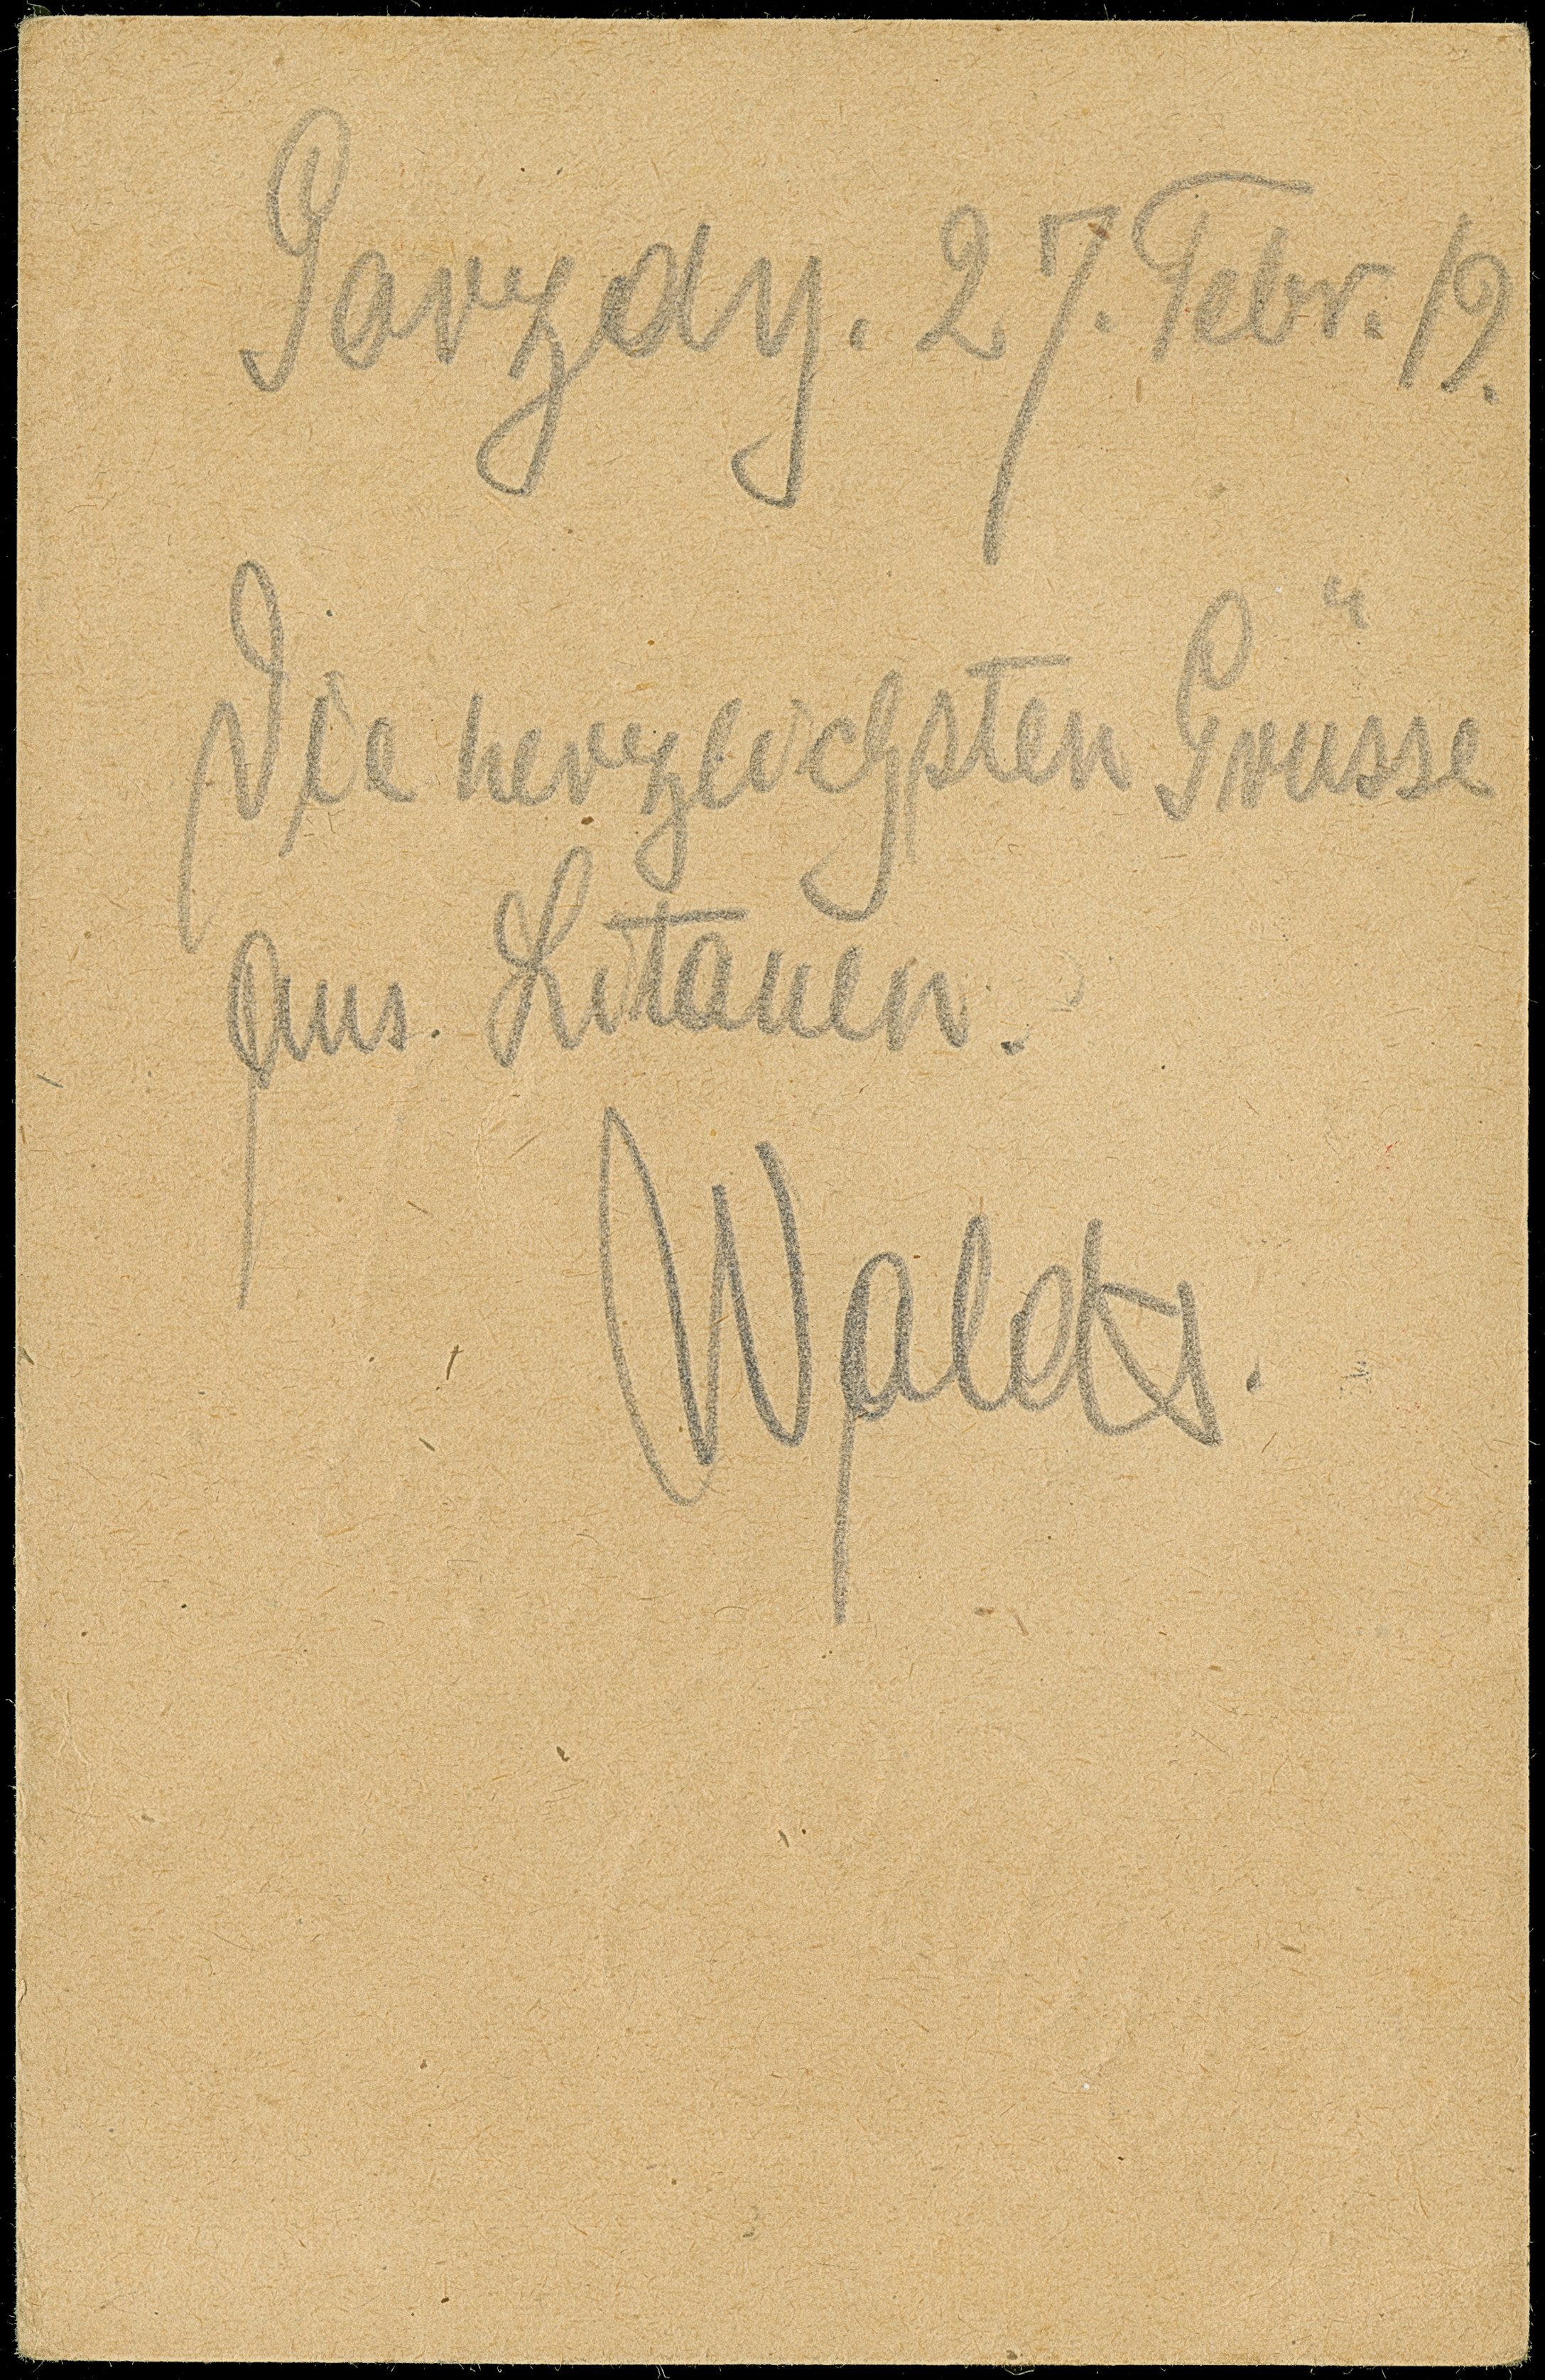 Garzdy. 27. Febr. 19.
Die herzlichsten Grüsse
aus. Litauen.